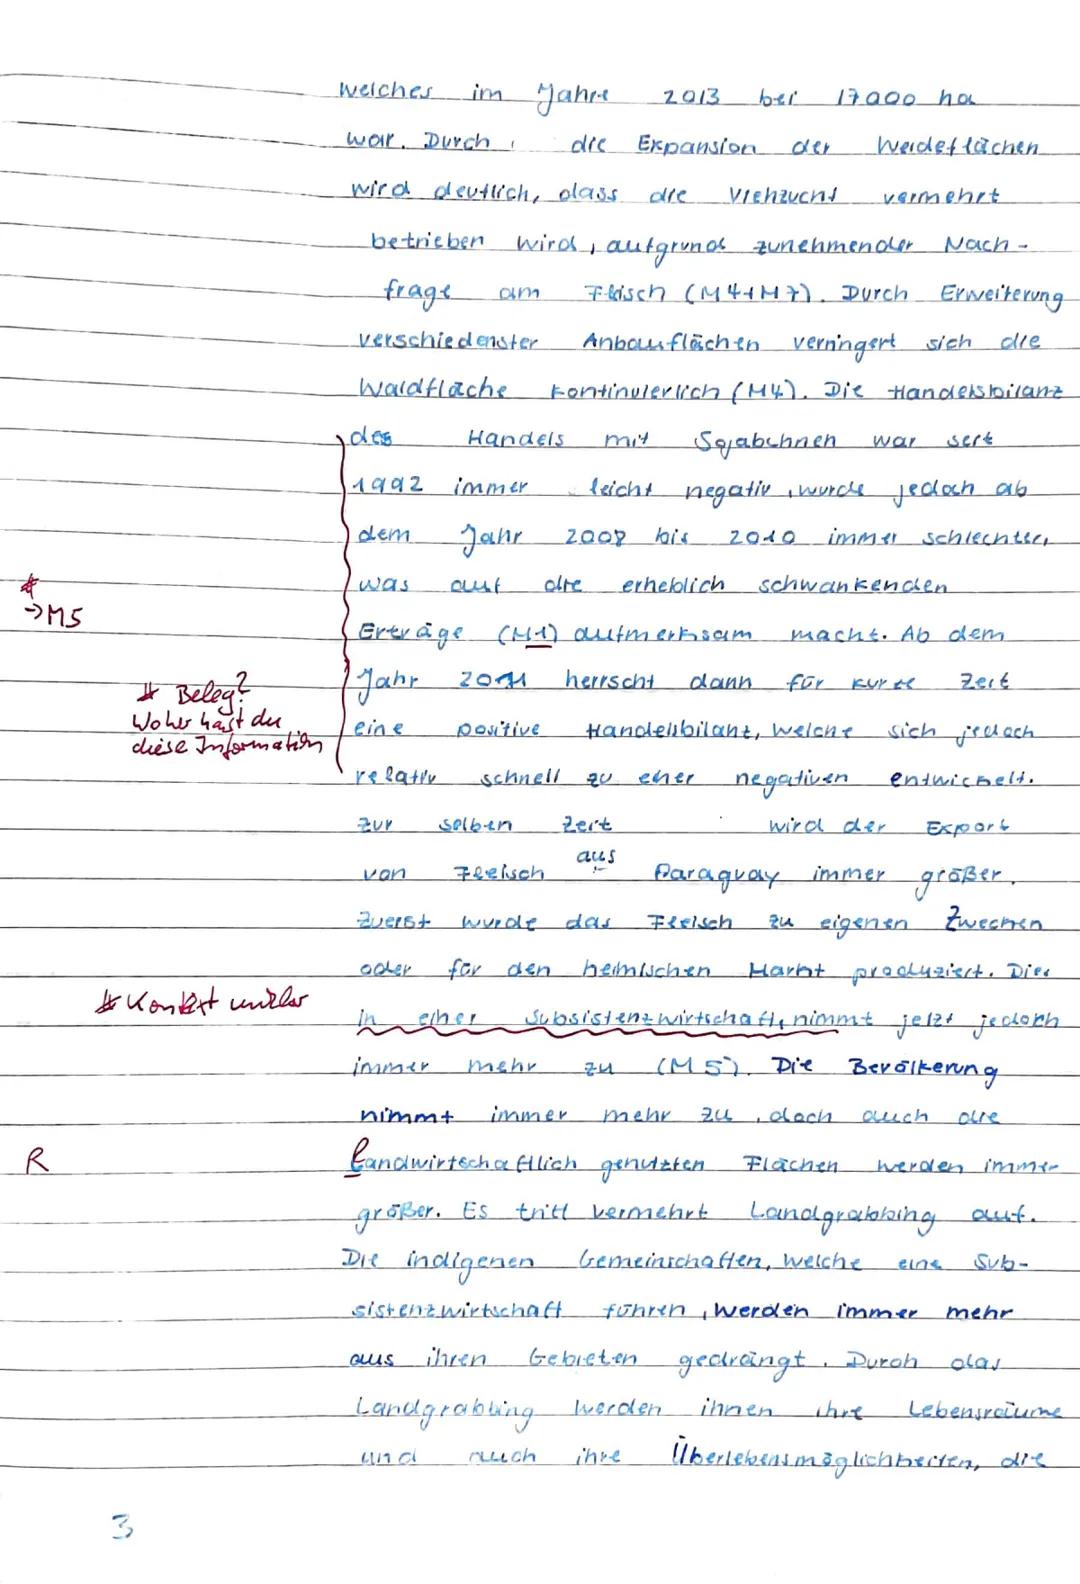 welches im Jahre 2013 bei 17000 ha
war. Durch die Expansion der Weideflächen
wird deutlich, dass die Viehzucht vermehrt
betrieben wird, aufgrund zunehmender Nach-
frage am Fleisch (M4+M7). Durch Erweiterung
verschiedenster Anbauflächen verringert sich die
Waldfläche kontinuierlich (M4). Die Handelsbilanz
des Handels mit Sojabohnen war seit
1992 immer leicht negativ, wurde jedoch ab
dem Jahr 2008 bis 2010 immer schlechter,
was auf die erheblich schwankenden
#
→M5
Erträge (M1) aufmerksam macht. Ab dem
Jahr 2011 herrscht dann für kurze Zeit
# Beleg?
Woher hast du
diese Information
eine positive Handelsbilanz, welche sich jedoch
relativ schnell zu einer negativen entwickelt.
Zur selben Zeit wird der Export
von Fleisch aus Paraguay immer größer.
Zuerst wurde das Fleisch zu eigenen Zwecken
oder für den heimischen Markt produziert. Dies
# Kontext unklar
in einer Subsistenzwirtschaft, nimmt jetzt jedoch
immer mehr zu (M5). Die Bevölkerung
nimmt immer mehr zu, doch auch die
R
landwirtschaftlich genutzten Flächen werden immer
größer. Es tritt vermehrt Landgrabbing auf.
Die indigenen Gemeinschaften, welche eine Sub-
sistenzwirtschaft führen, werden immer mehr
aus ihren Gebieten gedrängt. Durch das
Landgrabbing werden ihnen ihre Lebensräume
und auch ihre Überlebensmöglichkeiten, die
3